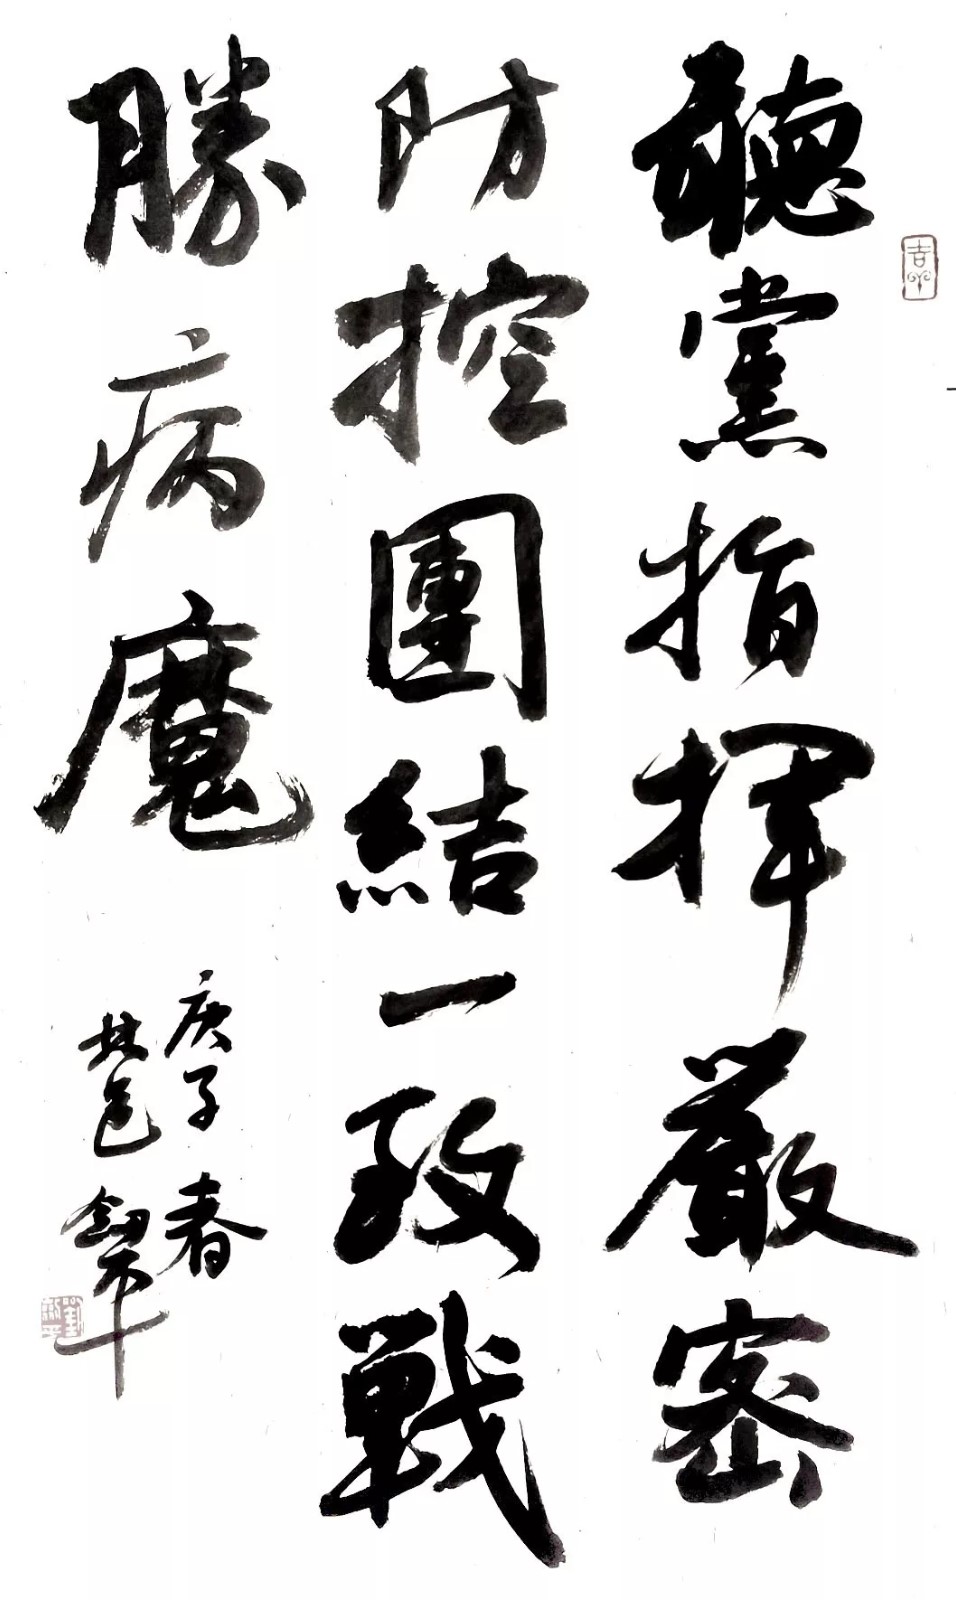 聽黨指揮嚴密
防控團結一致戰
勝病魔
庚子春
林邑